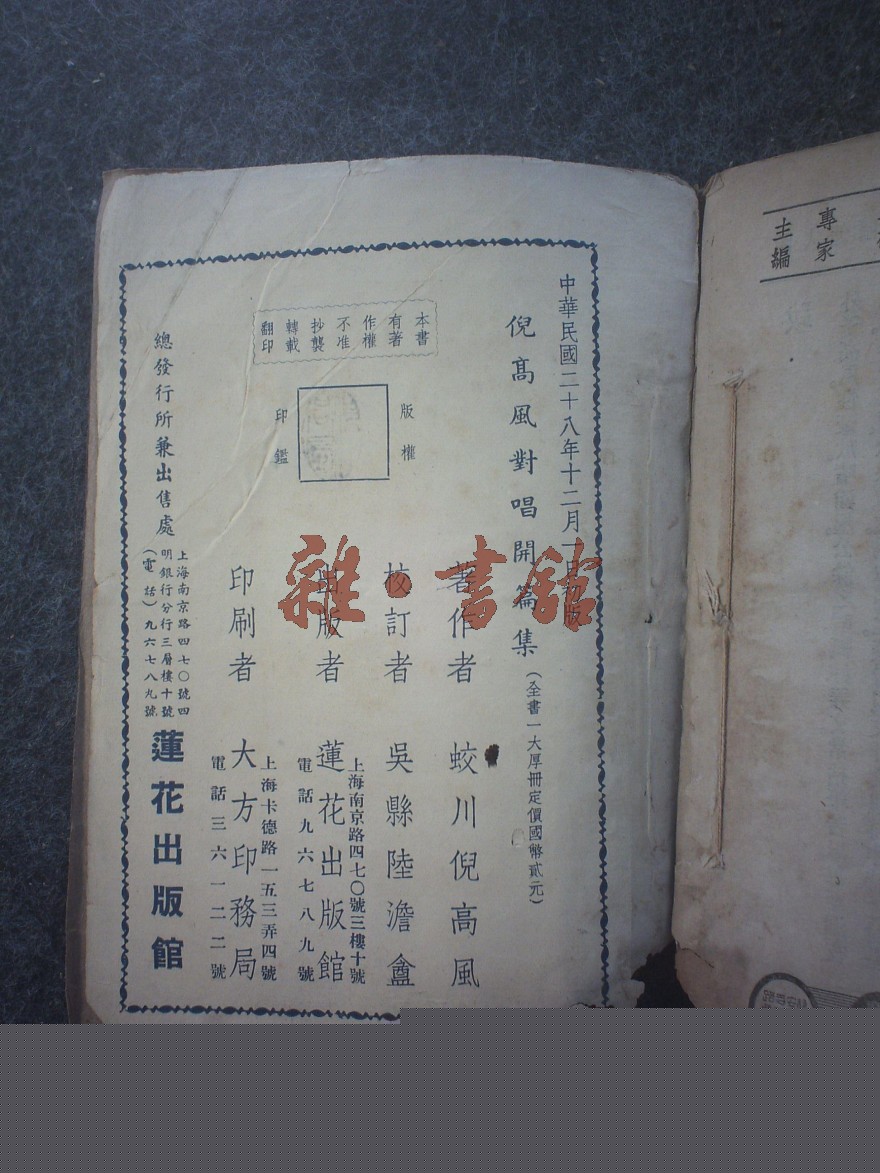 中華民國二十八年十二月一日初版
倪高風對唱開篇集
(全書一大厚冊定價國幣貳元)
著作者 蛟川倪高風
校訂者 吳縣陸澹盦
出版者 蓮花出版館
上海南京路四七〇號三樓十號
電話九六七八九號
印刷者 大方印務局
上海卡德路一五三弄四號
電話三六一二二號
本書
有著
作權
不准
抄襲
轉載
翻印
版權
印鑑
總發行所兼出售處
上海南京路四七〇號四
明銀行分行三層樓十號
(電話)九六七八九號
蓮花出版館
專家
主編
雜·書館